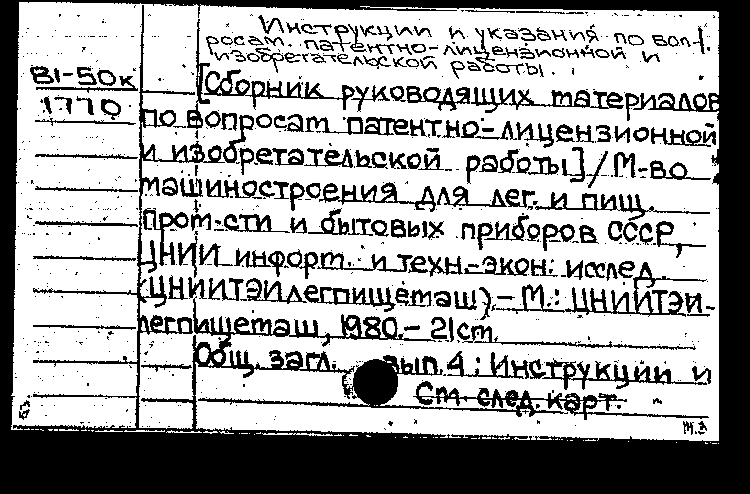 Инструкции и указания по воп-
росам патентно-лицензионной и
изобретательской работы.
В1-50к
1770
[Сборник руководящих материалов
по вопросам патентно-лицензионной
и изобретательской работы] / М-во
машиностроения для лег. и пищ.
пром-сти и бытовых приборов СССР,
ЦНИИ информ. и техн.-экон. исслед.
(ЦНИИТЭИлегпищемаш). - М.: ЦНИИТЭИ-
легпищемаш, 1980. - 21см.
Общ. загл. вып. 4 : Инструкции и
См. след. карт.